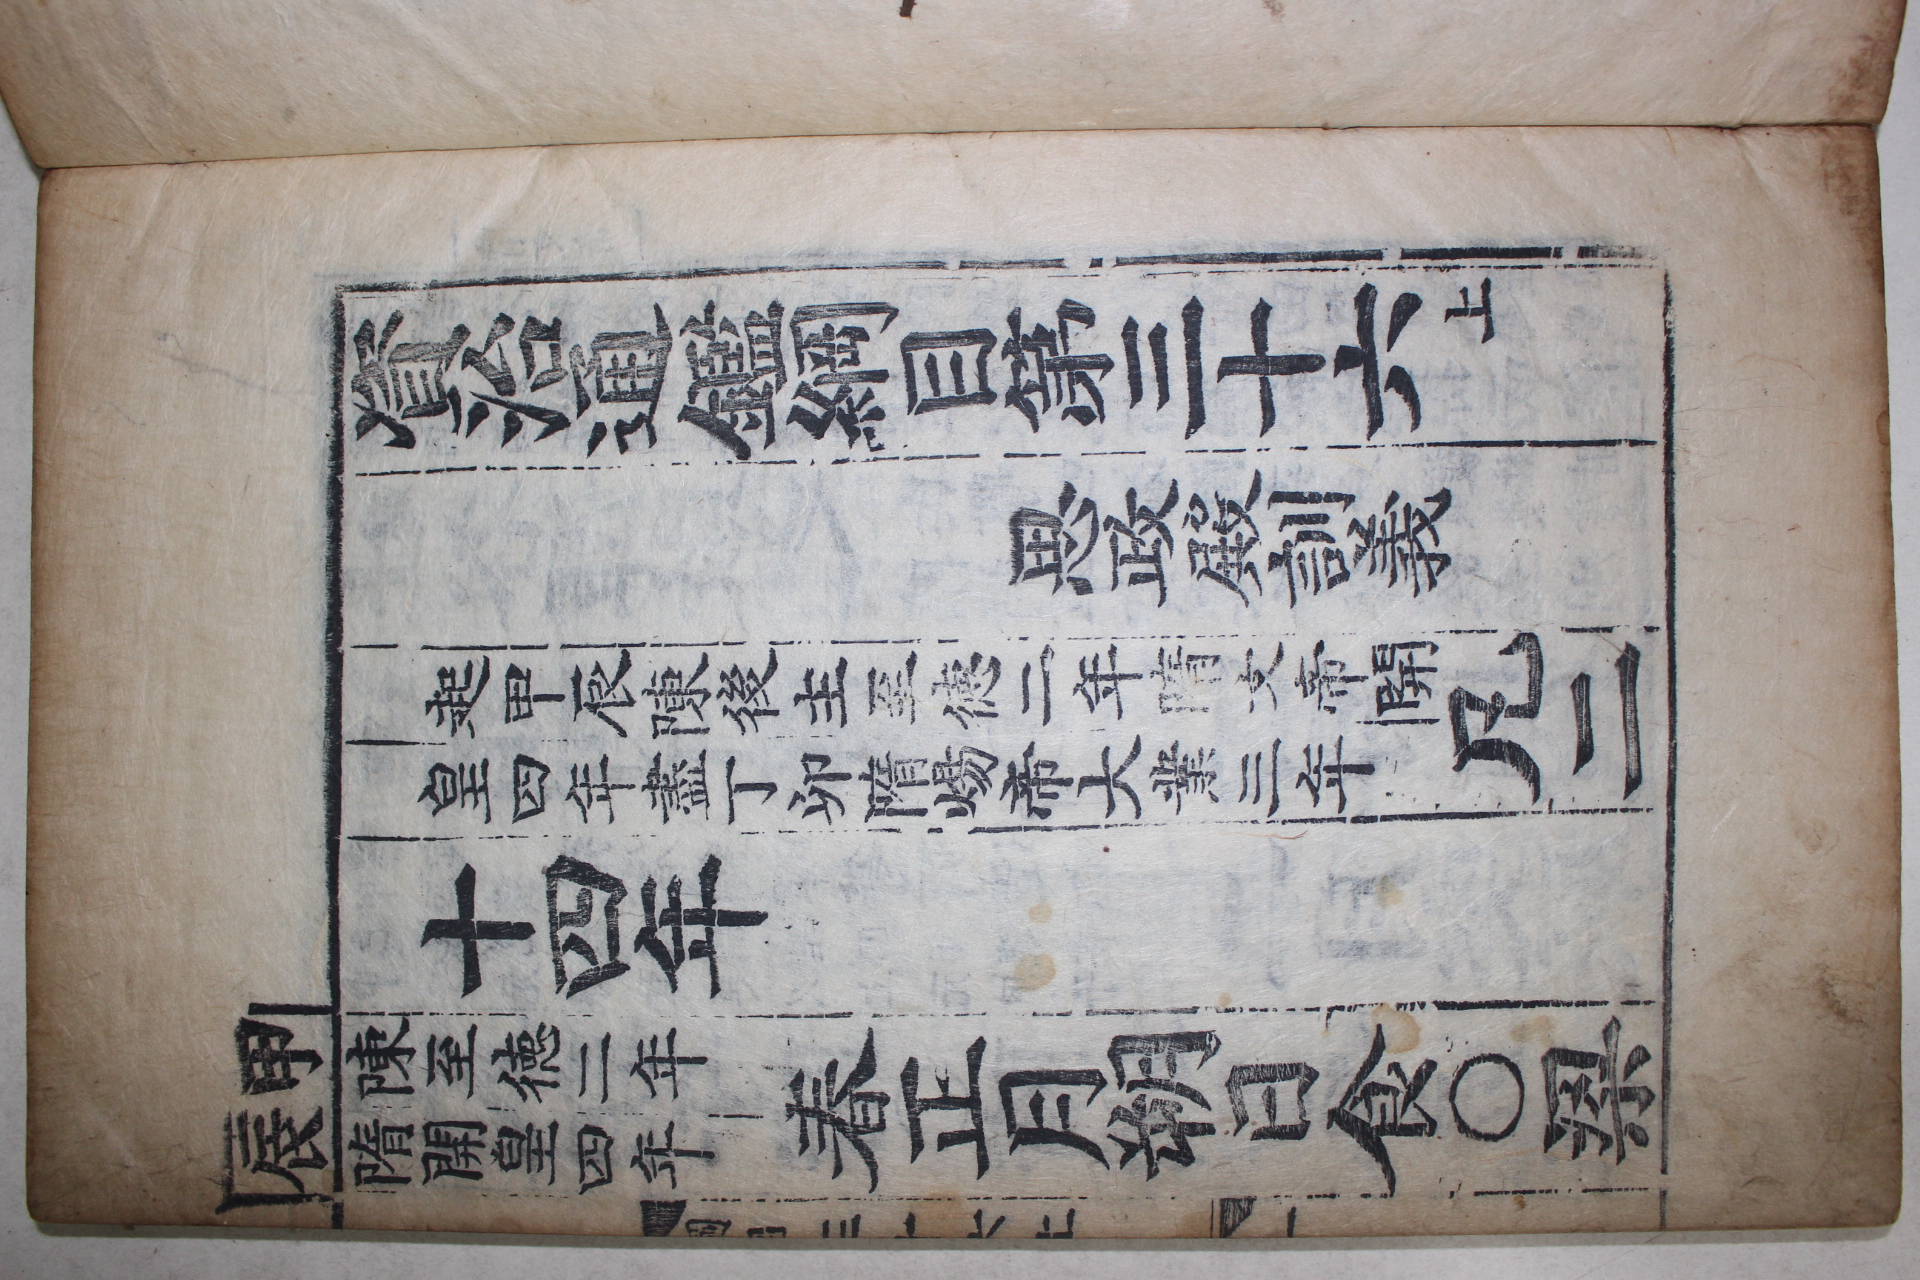 資治通鑑綱目第三十六上
思政殿訓義
起甲辰陳後主至德二年隋文帝開
皇四年盡丁卯隋煬帝大業三年
凡二
十四年
甲
辰
陳至德二年
隋開皇四年
春正月朔日食○梁
綱目三十六上
一